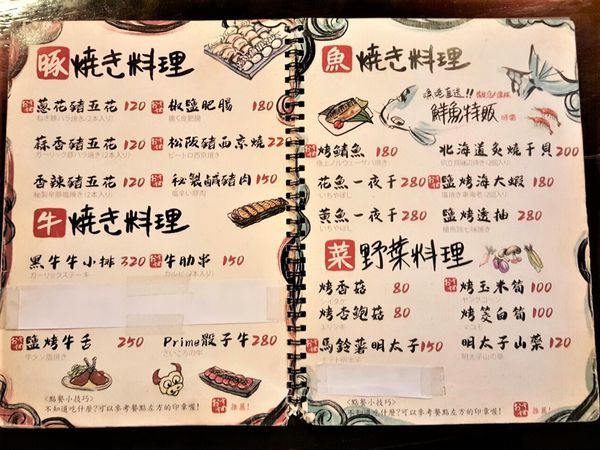 豚 焼き料理
蔥花豬五花 120
ねぎ豚バラ焼き(2本入り)
椒鹽肥腸 180
蒜香豬五花 120
ガーリック豚バラ焼き(2本入り)
松阪豬西京燒 22
ピートロ西京焼き
香辣豬五花 120
秘製鹹豬肉 150
塩辛い豚肉
牛 焼き料理
黑牛牛小排 320
ガーリックステーキ
牛肋串 150
カルビ(2本入り)
鹽烤牛舌 250
牛タン塩焼き
Prime骰子牛 280
さいころの牛
<點餐小技巧>
不知道吃什麼?可以參考餐點左方的印章喔!
推薦!
魚 焼き料理
鮮魚特販
烤鯖魚 180
北海道炙燒干貝 200
花魚一夜干 280
いちやぼし
鹽烤海大蝦 180
黃魚一夜干 280
いちやぼし
鹽烤透抽 280
菜 野菜料理
烤香菇 80
シイタケ
烤玉米筍 100
ヤングコーン
烤杏鮑菇 80
エリンギ
烤茭白筍 100
マコモ
馬鈴薯明太子 150
明太子山藥 120
明太子山の薬
<點餐小技巧>
不知道吃什麼?可以參考餐點左方的印章喔!
推薦!